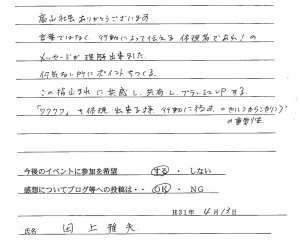 高山社長ありがとうございます。
言葉ではなく、行動によって伝える体現者であれ!の
メッセージが理解出来ました。
何気ない所にポイントをつくる。
この指止まれに共感し、共有し、ブラッシュUPする。
「ワクワク」を体現出来る様、行動に移す
の重要性
今後のイベントに参加を希望 する ・ しない
感想についてブログ等への投稿は・・ OK ・ NG
H31年 4月13日
氏名 田上 雅夫